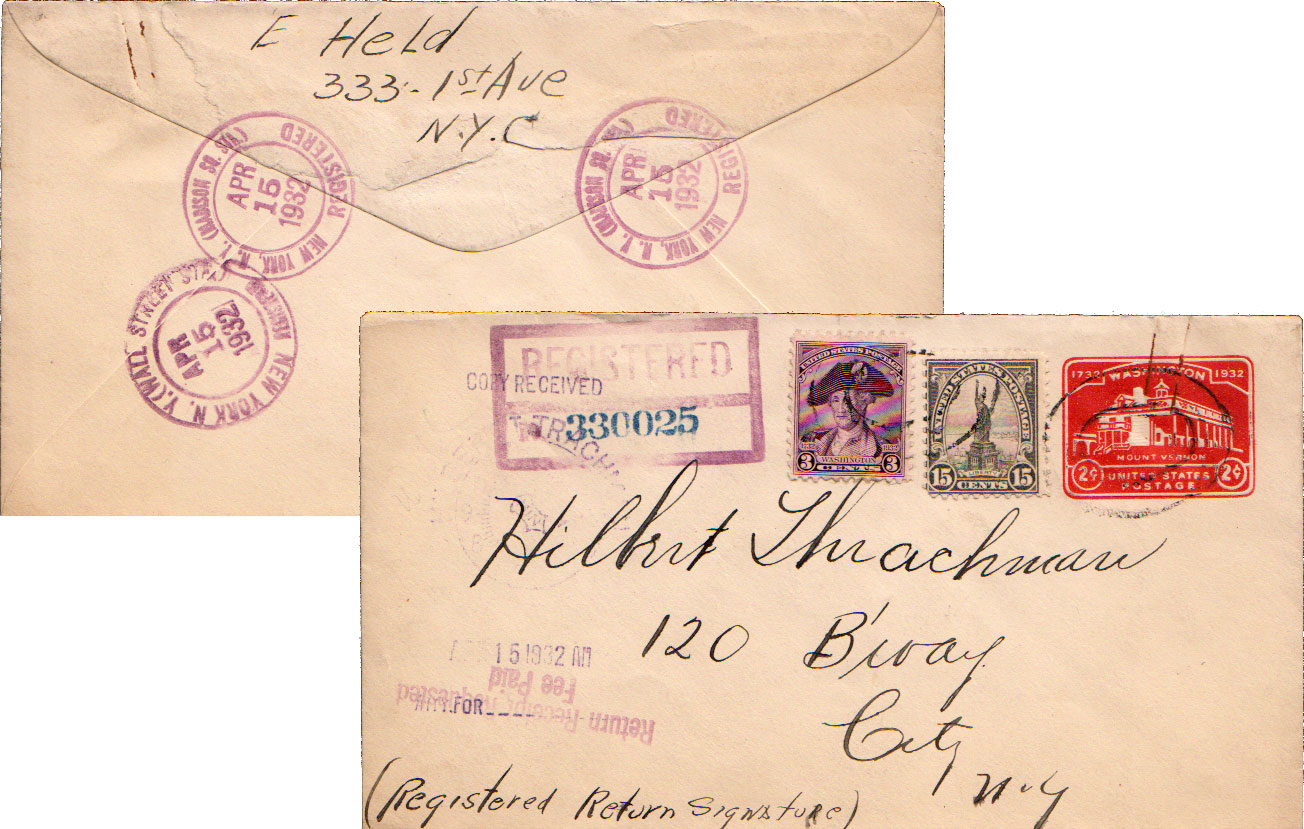 E Held
333 - 1st Ave
N.Y.C
REGISTERED
NEW YORK, N. Y. (MADISON SQ. STA.)
APR
15
1932
REGISTERED
NEW YORK, N. Y. (MADISON SQ. STA.)
APR
15
1932
NEW YORK N. Y. (WALL STREET STA.)
APR
15
1932
REGISTERED
COPY RECEIVED
330025
UNITED STATES POSTAGE
1732 1932
WASHINGTON
3 CENTS 3
UNITED STATES POSTAGE
LIBERTY
15 CENTS 15
1732 WASHINGTON 1932
MOUNT VERNON
2¢ UNITED STATES 2¢
POSTAGE
Hilbert Thrachman
120 B'way
City
N.Y
15 1932 AM
Return Receipt Requested
Fee Paid
FOR
(Registered Return Signature)